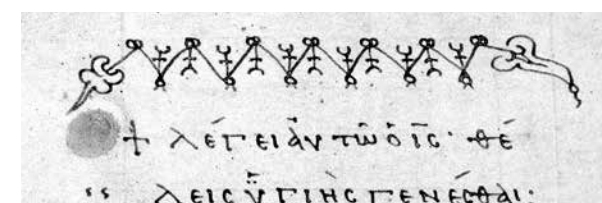 + λέγει ἀν τῶ ὁ ῑς· θέ
λεις ὑγιὴς γενέσθαι·